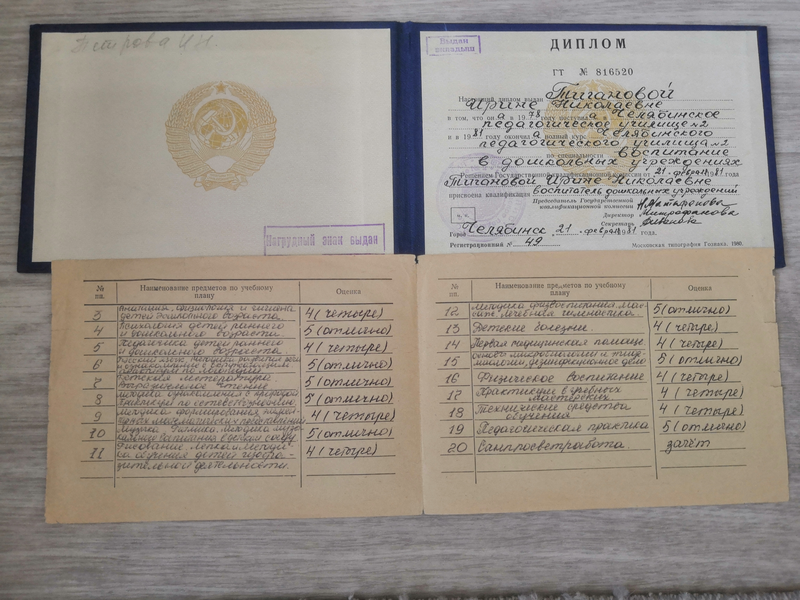 Тигрова И.Н.
Нагрудный знак выдан
ДИПЛОМ
ГТ № 816520
Настоящий диплом выдан Тигановой
Ирине Николаевне
в том, что он а в 1978 году поступил а Челябинское
педагогическое училище №2
и в 1981 окончил а полный курс Челябинского
педагогического училища №2
по специальности воспитание
в дошкольных учреждениях
Решением Государственной квалификационной комиссии от 21 февраля 1981 года
Тигановой Ирине Николаевне
присвоена квалификация воспитатель дошкольных учреждений
Председатель Государственной
квалификационной комиссии
Директор Митрофанова
Секретарь
Город Челябинск 21 февраля 1981 года.
Регистрационный № 49
Московская типография Гознака. 1980.
№ пп. Наименование предметов по учебному плану Оценка
3 Анатомия, физиология и гигиена
детей дошкольного возраста. 4 (четыре)
4 Психология детей раннего
и дошкольного возраста 5 (отлично)
5 Педагогика детей раннего
и дошкольного возраста 4 (четыре)
6 5 (отлично)
7 Детская литература
Выразительное чтение 5 (отлично)
8 Методика ознакомления с природой
5 (отлично)
9 Методика формирования
математических представлений 4 (четыре)
10 5 (отлично)
11 Рисование, лепка и методи-
ка обучения детей изобра-
зительной деятельности. 4 (четыре)
№ пп. Наименование предметов по учебному плану Оценка
12 Методика физвоспитания, мас-
саж, лечебная гимнастика. 5 (отлично)
13 Детские болезни. 4 (четыре)
14 Первая медицинская помощь 4 (четыре)
15 Основы микробиологии и эпиде-
миологии, дезинфекционное дело 5 (отлично)
16 Физическое воспитание 4 (четыре)
17 Практикум в учебных
мастерских 4 (четыре)
18 Технические средства
обучения 4 (четыре)
19 Педагогическая практика 5 (отлично)
20 Санпросветработа. зачёт